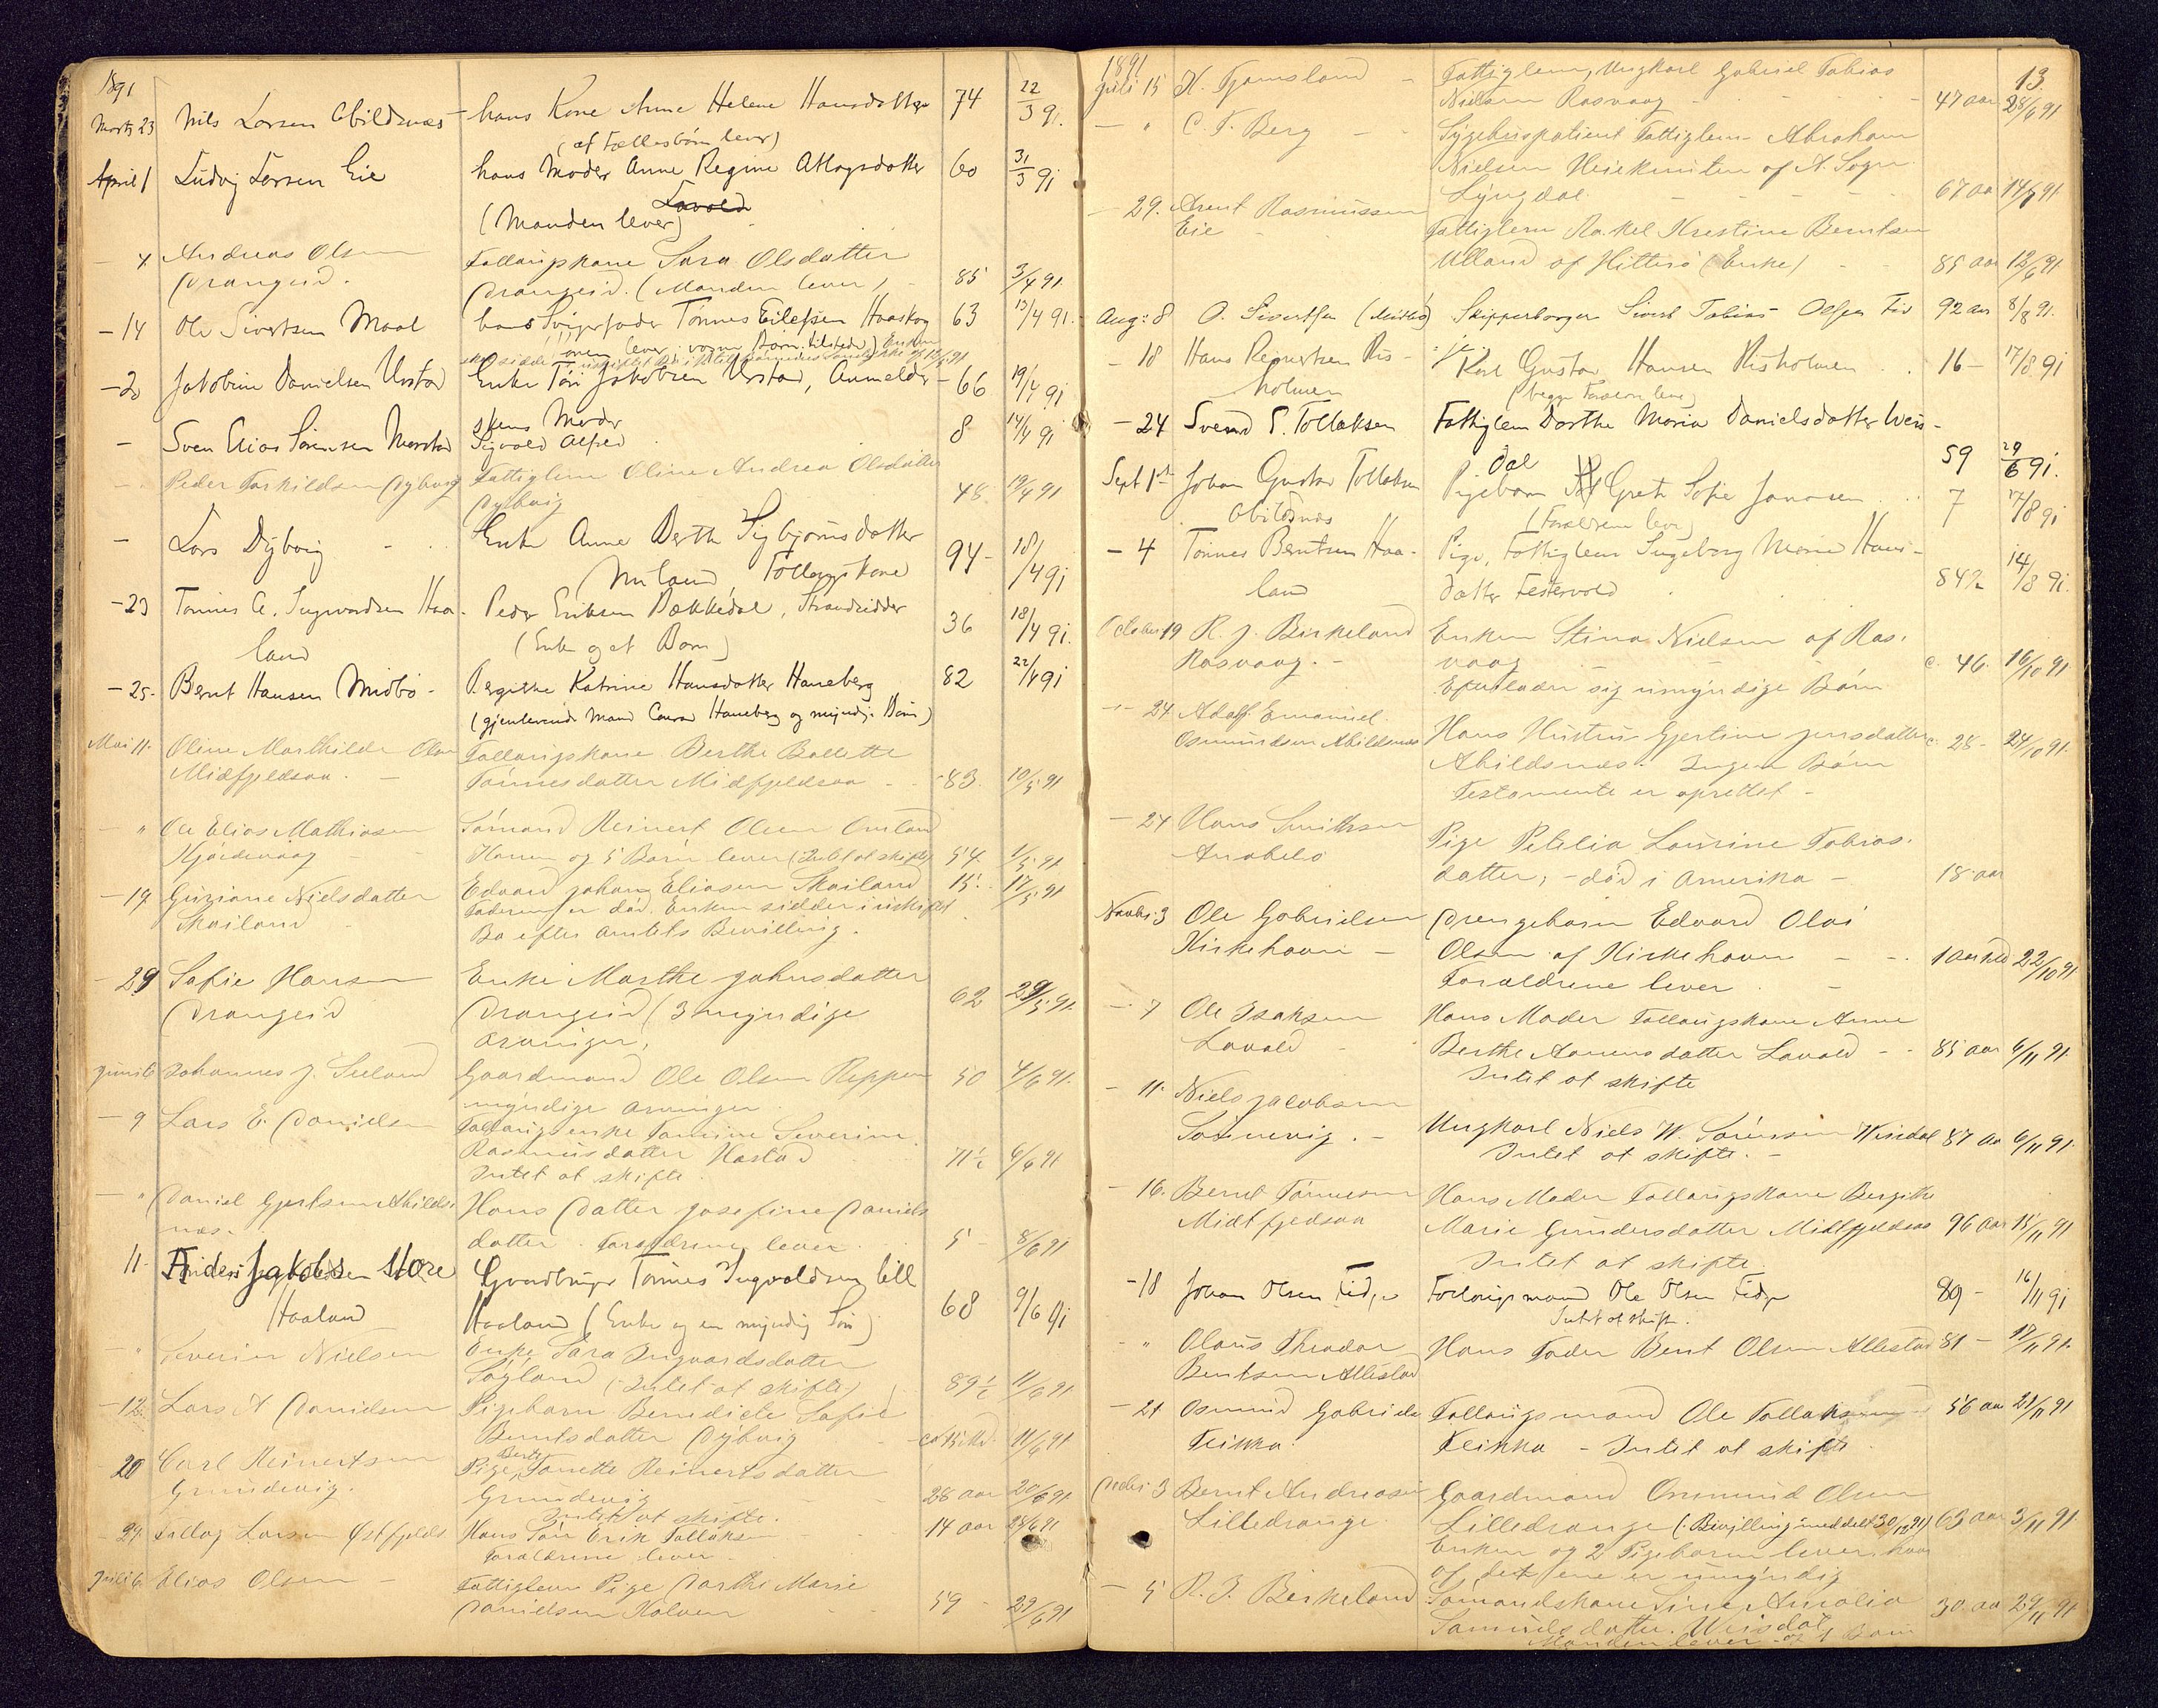 1891
Marts 23 Nils Larsen Abildsnæs - hans Kone Anne Helene Hansdatter 74 22/3 91.
(af Fællesbørn lever)
April 1 Ludvig Larsen Eie hans Moder Anne Regine Atlagsdatter 60 31/3 91
Lavold
(Manden lever)
- 4 Andreas Olsen Follaugskone Sara Olsdatter
Drangeid. Drangeid. (Manden lever) - 85 3/4 91.
- 14 Ole Sivertsen Maal hans Svigerfader Tønnes Eilefsen Haaskog 63 13/4 91.
lever Børn tilstede) Enken
- 20 Jakobine Danielsen Urstad Enke Tøri Jakobsen Urstad, Anmelder- 66 19/4 91
skens Moder
- Sven Elias Sørensen Sigvald Alfred 8 14/4 91
- Peder Torkildsen Dybvig Fattiglem Oline Andrea Olsdatter
Dybvig 48. 19/4 91
- Lars Dybvig - Enke Anne Berthe Sigbjørnsdatter 94 - 18/4 91
Follaugskone
- 23 Tønnes A. Ingvardsen Haa- Peder Eriksen Bækkedal, Strandsidder 36 18/4 91.
land (Enke og et Barn)
- 25. Bernt Hansen Midbø - Bergitte Katrine Hansdatter Haneberg 82 22/4 91
(gjenlevende Mand Conrad Haneberg og myndige Børn)
Mai 11. Oline Marthilde Olsen Follaugskone Berthe Bollette
Midfjeldsaa. - Tønnesdatter Midfjeldsaa - - 83. 10/5 91
- " Ole Elias Mathiasen Sømand Reinert Olsen
Konen og 5 Børn lever (Intet at skifte) 54. 1/5 91
- 19 Guriane Nielsdatter Edvard Johan Eliasen Skailand 15. 17/5 91
Skailand Faderen er død. Enken sidder i uskiftet
Bo efter Amtets Bevilling.
- 29 Sofie Hansen Enke Marthe Johnsdatter
Drangeid Drangeid (3 myndige 62 29/5 91.
Arvinger,
Juni 6 Johannes J. Seeland Gaardmand Ole Olsen Reppen 50 4/6 91.
myndige Arvinger.
- 9 Lars E. Danielsen Follaugsenke Tomine Severine
Rasmusdatter 71½ 6/6 91
Intet at skifte.
- " Daniel Gjertsen Abilds- Hans Datter Josefine Daniels
næs. datter. Forældrene lever. 5 - 8/6 91
11. Anders Jakobsen Store Gaardbruger Tønnes Ingvaldsen lill
Haaland Haaland (Enke og en myndig Søn) 68 9/6 91
- " Severin Nielsen Enke Sara Ingvardsdatter
Søgland (Intet at skifte) 89½ 11/6 91
- 12. Lars A Danielsen Pigebarn Benedicte Sofie
Berntsdatter Dybvig - 11/6 91
20 Carl Reinertsen Pige, Berte Tonette Reinertsdatter
Grundevig. Grundevig - - 28 aar 20/6 91
Intet at skifte.
- 29. Tallag Larsen Østfjelds Hans Søn Erik Tallaks 14 aar 28/6 91
Forældrene lever.
Juli 6. Elias Olsen - Fattiglem Pige Dorthe Marie
Danielsen - - 59 - 29/6 91
13.
1891
Juli 15 K. Tjomsland - Fattiglem, Ungkarl Gabriel Tobias
Nielsen Rasvaag - - - 47 aar 28/6 91
- " C. F. Berg - - Sygehuspatient Fattiglem Abraham
Nielsen af N. Sogn
Lyngdal. - - - 67 aa 14/7 91
- 29. Arent Rasmussen Fattiglem Rakel Kristine Berntsen
Eie - Ulland af Hitterø (Enke) - - 85 aar 12/6 91
Aug: 8 O. Sivertsen (Midbø) Skipperborger Sivert Tobias Olsen Eie 92 aar 8/8 91.
- 18 Hans Reinertsen Ris- Karl Gustav Hansen Risholmen . . 16 - 17/8 91
holmen (begge Forældre lever)
- 24 Svend S. Tollaksen Fattiglem Dorthe Maria Danielsdatter Weis-
dal 59 29/6 91.
Sept 1st Johan Gustav Tollaksen Pigebarn Grete Sofie Jonassen . . 7 17/8 91
Abildsnæs (Forældrene lever)
- 4 Tønnes Berntsen Haa- Pige, Fattiglem Ingeborg Marie Hans-
land datter Festervold . 84½ 14/8 91.
October 19 R. J. Birkeland Enken Stina Nielsen af Ras-
Rasvaag. - vaag - - - c. 46. 16/10 91
Efterlader sig umyndige Børn
- 24 Adolf Emanuel
Osmundsen Abildsnæs Hans Hustru Gjertine Jensdatter c. 28 - 24/10 91.
Abildsnæs. Ingen Børn
Testamente er oprettet -
- 24 Hans Smithsen Pige Petelia Lourine Tobias-
Anabelø datter, - død i Amerika - 18 aar
Novbr. 3 Ole Gabrielsen Drengebarn Edvard Olai
Kirkehavn - Olsen af Kirkehavn - - 22/10 91
Forældrene lever -
- 7 Ole Isaksen Hans Moder Follaugskone Anne
Lavold - Berthe Aanensdatter Lavold - - 85 aar 6/11 91.
Intet at skifte
- 11. Niels Jacobsen
Sønnevig. - Ungkarl Niels W. Sørensen Weisdal 87 aa 6/11 91.
Intet at skifte. -
- 16. Bernt Tønnesen Hans Moder Follaugskone Bergithe
Midtfjedsaa Marie Gundersdatter Midtfjeldsaa 96 aar 15/11 91
Intet at skifte.
- 18 Johan Olsen Eidsaa Follaugsmand Ole Olsen Eidsaa 89 - 16/11 91
Intet at skifte.
- " Olaus Theodor Hans Fader Bent Olsen Allestad 81 - 17/11 91.
Bentsen Allestad
- 21 Osmund Gabriels Follaugsmand Ole Tollaksen 56 aar 21/11 91
Fleikka. Fleikka - Intet at skifte.
Decbr. 3 Bernt Andreasen Gaardmand Osmund Olsen
Lilledrange. Lilledrange (Bevilling meddelt 30/12 91) 63 aar 3/11 91.
Enken og 2 Pigebørn lever, hvor
af det ene er umyndig
- 5 R. J. Birkeland Sømandskone Sine Amalia 30 aa 29/11 91
Samuelsdatter. Weisdal
Manden lever og 1 Barn